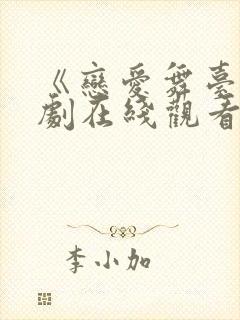 《戀愛舞臺
劇在綫觀看
李小加